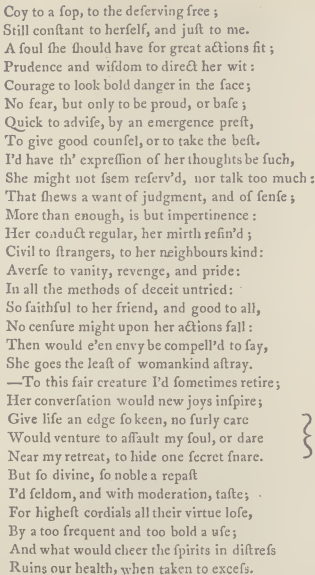 Coy to a ſop, to the deſerving free ;
Still conſtant to herſelf, and juſt to me.
A ſoul ſhe ſhould have for great actions fit ;
Prudence and wiſdom to direct her wit :
Courage to look bold danger in the face ;
No fear, but only to be proud, or baſe ;
Quick to adviſe, by an emergence preſt,
To give good counſel, or to take the beſt.
I'd have th' expreſſion of her thoughts be ſuch,
She might not ſſem reſerv'd, nor talk too much :
That ſhews a want of judgment, and of ſenſe ;
More than enough, is but impertinence :
Her conduct regular, her mirth refin'd ;
Civil to ſtrangers, to her neighbours kind :
Averſe to vanity, revenge, and pride :
In all the methods of deceit untried :
So faithful to her friend, and good to all,
No cenſure might upon her actions fall :
Then would e'en envy be compell'd to ſay,
She goes the leaſt of womankind aſtray.
—To this fair creature I'd ſometimes retire ;
Her converſation would new joys inſpire ;
Give life an edge ſo keen, no ſurly care
Would venture to aſſault my ſoul, or dare
Near my retreat, to hide one ſecret ſnare.
But ſo divine, ſo noble a repaſt
I'd ſeldom, and with moderation, taſte ;
For higheſt cordials all their virtue loſe,
By a too frequent and too bold a uſe ;
And what would cheer the ſpirits in diſtreſs
Ruins our health, when taken to exceſs.